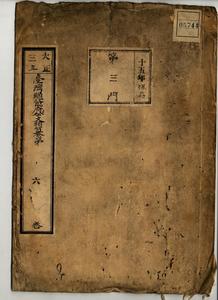 大正
三年
臺灣總督府公文類纂
六
卷
十五年保存
第三門
05744